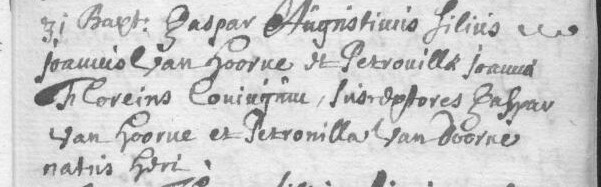 31 Bapt: Jaspar Augustinus filius
Joannis Van Hoorne et Petronilla Joanna
Floreins Coniugum, Susceptores Jaspar
van Hoorne et Petronilla Van Hoorne
natus heri